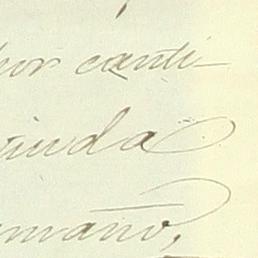 por canti-
inda
mano,